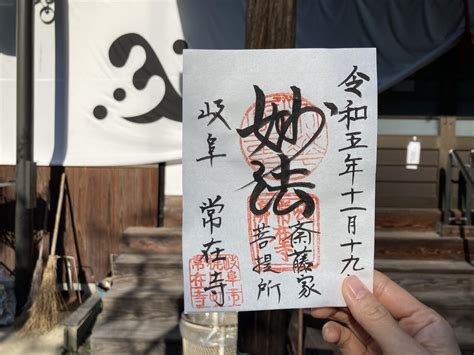 令和五年十一月十九
斎藤家
菩提所
妙法
岐阜 常在寺
岐阜市
常在寺